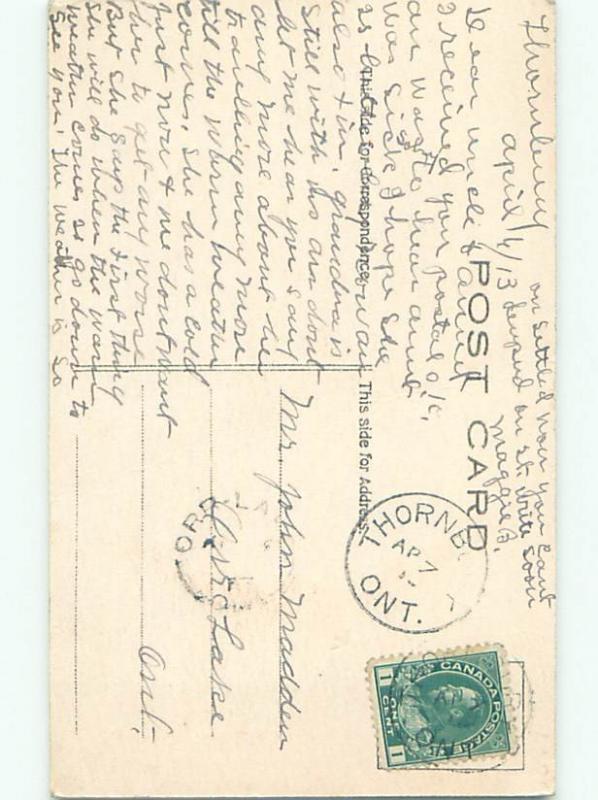 Thornbury
April 4/13
Dear uncle & aunt
I received your postal o/c,
an was to hear aunt
was sick I hope she
is better now an
also & in. grandma is
still with us an dont
let me hear you said
any more about her
travelling any more
till the warm weather
comes. She has a cold
Just now & we dont want
her to get any worse
But she says the first thing
she will do when the warm
weather comes is go down to
see you. The weather is so
on settled now you cant
depend on it. Write soon
Maggie B.
POST CARD
This side for Correspondence
This side for Address.
THORNB
AP 7
ONT.
CANADA POSTAGE
1 ONE CENT 1
Mr. John Madden
Lake
Ont.